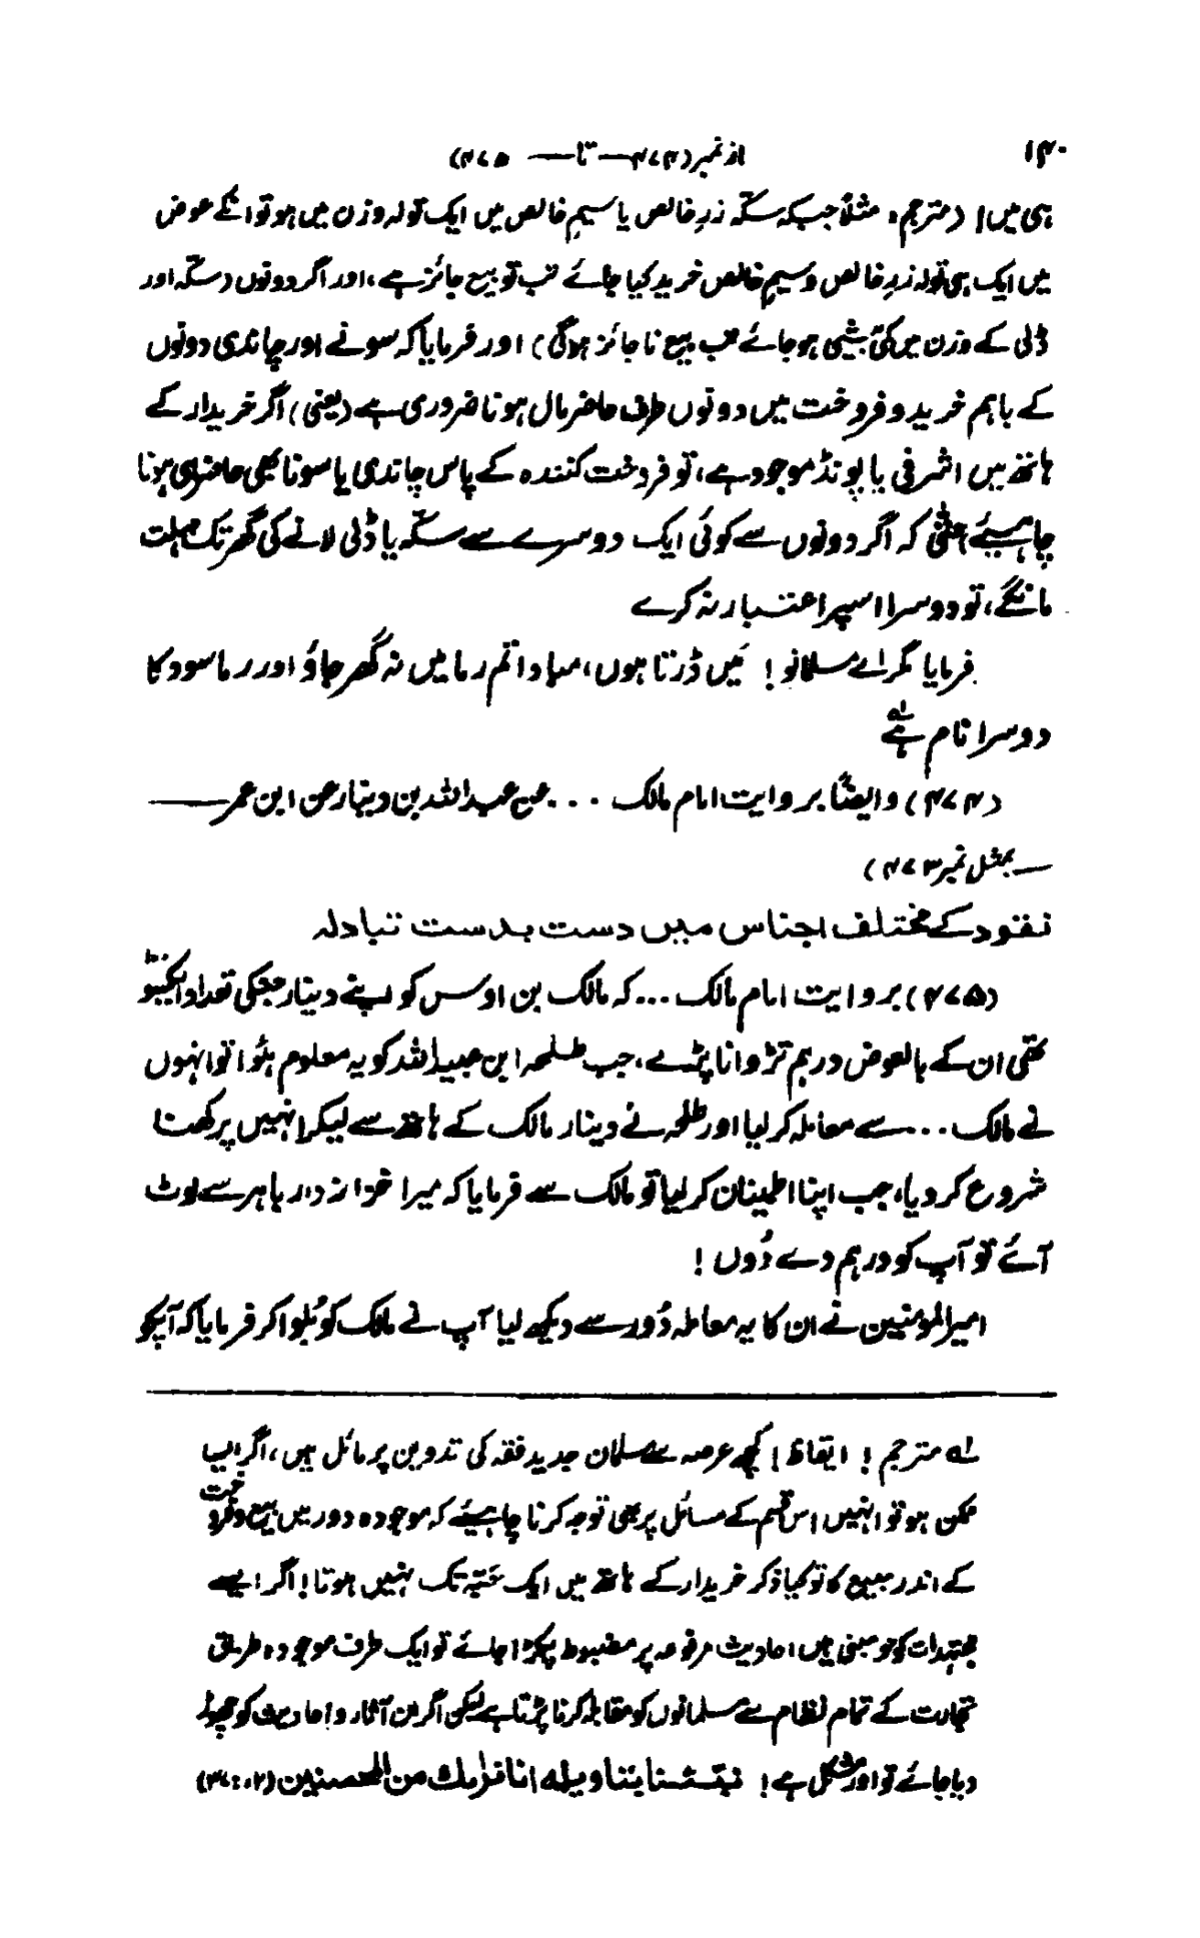 ۱۴۰
از نمبر (۴۷۴ — تا — ۴۷۵)
ہی میں! (مترجم: مثلاً جبکہ سکّہ زرِ خالص یا سیمِ خالص میں ایک تولہ وزن میں ہو تو انکے عوض
میں ایک ہی تولہ زرِ خالص و سیمِ خالص خرید کیا جائے تب تو بیع جائز ہے، اور اگر دونوں (سکّہ اور
ڈلی کے وزن میں کمی بیشی ہو جائے تب بیع ناجائز ہوگی) اور فرمایا کہ سونے اور چاندی دونوں
کے باہم خرید و فروخت میں دونوں طرف حاضر مال ہونا ضروری ہے (یعنی) اگر خریدار کے
ہاتھ میں اشرفی یا پونڈ موجود ہے، تو فروخت کنندہ کے پاس چاندی یا سونا بھی حاضر ہی ہونا
چاہیئے حتیٰ کہ اگر دونوں سے کوئی ایک دوسرے سے سکّہ یا ڈلی لانے کی گھر تک مہلت
مانگے، تو دوسرا اسپر اعتبار نہ کرے
فرمایا مگر اے مسلمانو! مَیں ڈرتا ہوں، مبادا تم رما میں نہ گھر جاؤ اور رما سود کا
دوسرا نام ہے ؂۱
(۴۷۴) و ایضاً بروایت امام مالک ... عن عبداللہ بن دینار عن ابن عمر ——
— بمثل نمبر ۴۷۳)
نقود کے مختلف اجناس میں دست بدست تبادلہ
(۴۷۵) بروایت امام مالک ... کہ مالک بن اوس کو اپنے دینار جنکی تعداد ایکسو
تھی ان کے بالعوض درہم تڑوانا پڑے، جب طلحہ ابن عبیداللہ کو یہ معلوم ہُوا تو انہوں
نے مالک ... سے معاملہ کر لیا اور طلحہ نے دینار مالک کے ہاتھ سے لیکر انہیں پرکھنا
شروع کر دیا، جب اپنا اطمینان کر لیا تو مالک سے فرمایا کہ میرا خزانہ دار باہر سے لوٹ
آئے تو آپ کو درہم دے دُوں!
امیرالمومنین نے ان کا یہ معاملہ دُور سے دیکھ لیا آپ نے مالک کو بُلوا کر فرمایا کہ آپکو
؂۱ مترجم! ایقاظ! کچھ عرصہ سے مسلمان جدید فقہ کی تدوین پر مائل ہیں، اگر ایسا
ممکن ہو تو انہیں اس قسم کے مسائل پر بھی توجہ کرنا چاہیئے کہ موجودہ دور میں بیع و فروخت
کے اندر مبیع کا تو کیا ذکر خریدار کے ہاتھ میں ایک حَبّہ تک نہیں ہوتا! اگر ایسے
مجتہدات کو جو مبنی ہیں احادیث مرفوعہ پر مضبوط پکڑا جائے تو ایک طرف موجودہ طریق
تجارت کے تمام نظام سے مسلمانوں کو مقابلہ کرنا پڑتا ہے لیکن اگر ان آثار و احادیث کو چھوڑ
دیا جائے تو اور مشکل ہے! نبئنا بتاویلہ انا نراک من المحسنین (۱۲:۳۶)